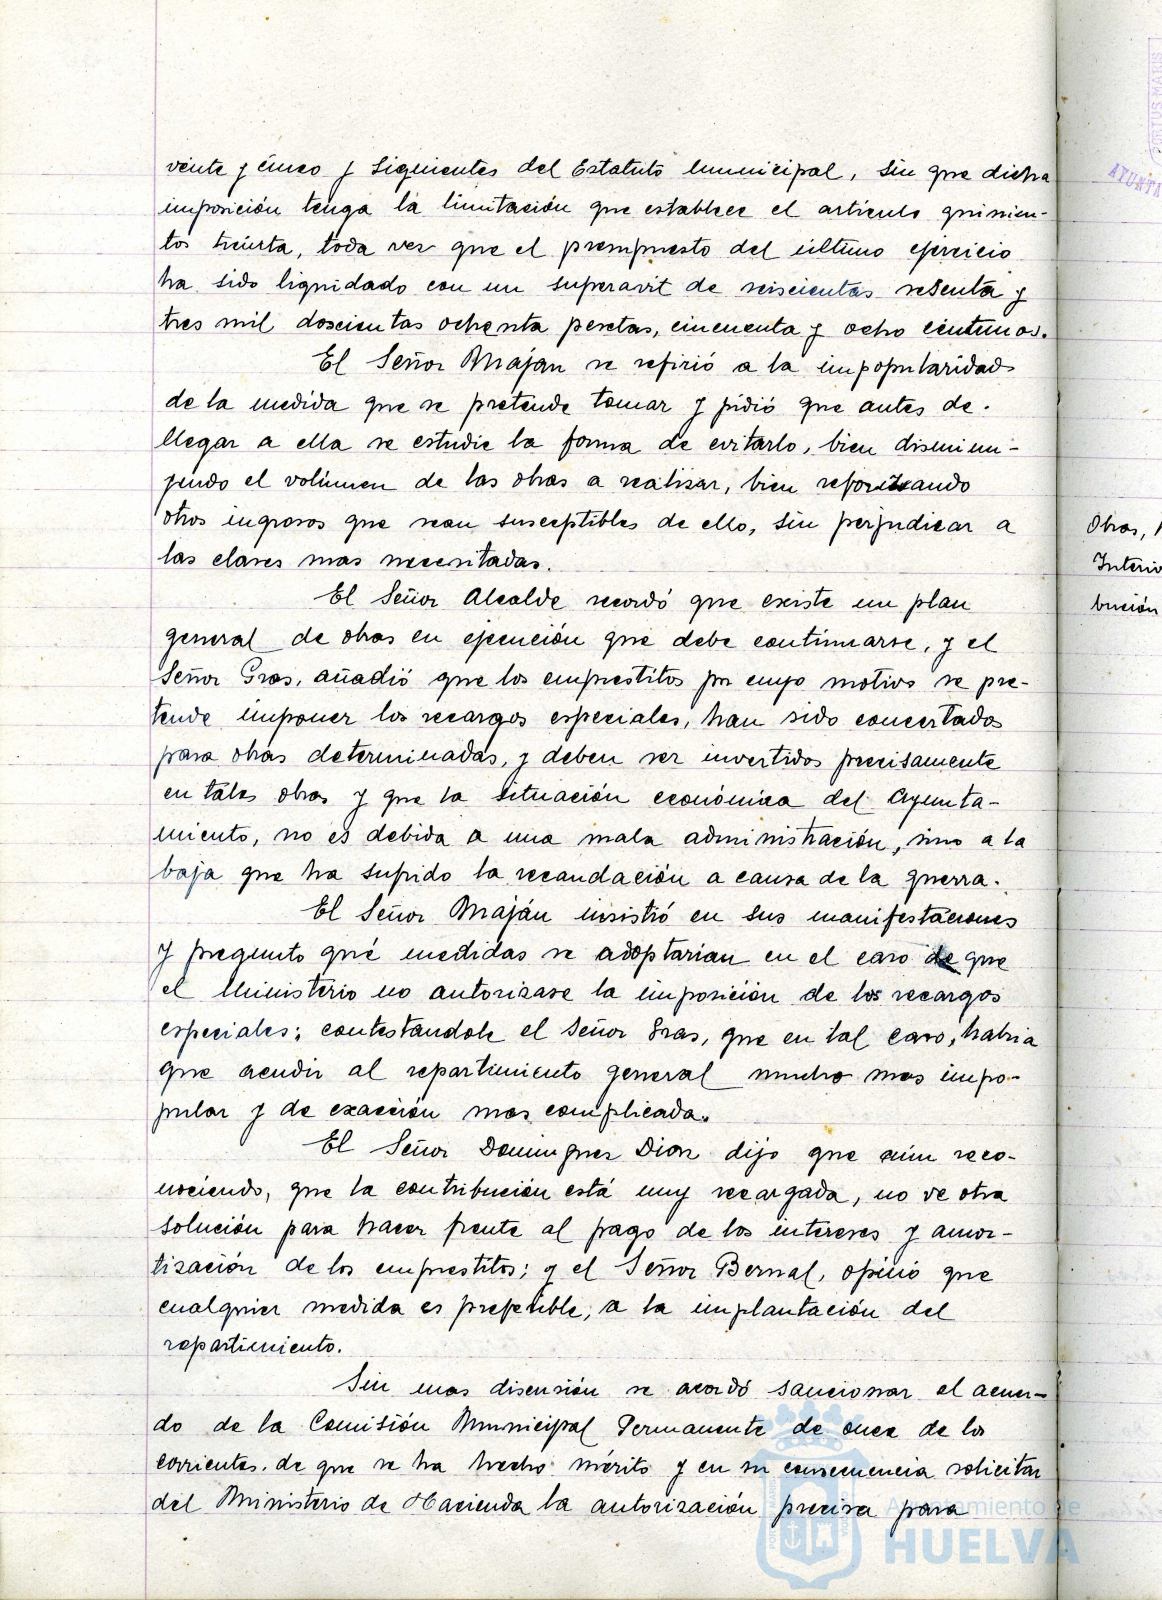 veinte y cinco y siguientes del Estatuto Municipal, sin que dicha
imposición tenga la limitación que establece el artículo quinien-
tos treinta, toda vez que el presupuesto del último ejercicio
ha sido liquidado con un superavit de seiscientas sesenta y
tres mil doscientas ochenta pesetas, cincuenta y ocho céntimos.
El Señor Maján se refirió a la impopularidad
de la medida que se pretende tomar y pidió que antes de
llegar a ella se estudie la forma de evitarlo, bien disminu-
yendo el volúmen de las obras a realizar, bien reforzando
otros ingresos que sean susceptibles de ello, sin perjudicar a
las clases mas necesitadas.
El Señor Alcalde recordó que existe un plan
general de obras en ejecución que debe continuarse, y el
Señor Gras, añadió que los empréstitos por cuyo motivo se pre-
tende imponer los recargos especiales, han sido concertados
para obras determinadas, y deben ser invertidos precisamente
en tales obras y que la situación económica del Ayunta-
miento, no es debida a una mala administración, sino a la
baja que ha sufrido la recaudación a causa de la guerra.
El Señor Maján insistió en sus manifestaciones
y pregunto qué medidas se adoptarian en el caso de que
el Ministerio no autorizase la imposición de los recargos
especiales; contestandole el Señor Gras, que en tal caso, habria
que acudir al repartimiento general mucho mas impo-
pular y de exacción mas complicada.
El Señor Dominguez Diaz dijo que aún reco-
nociendo, que la contribución está muy recargada, no ve otra
solución para hacer frente al pago de los intereses y amor-
tización de los empréstitos; y el Señor Bernal, opinó que
cualquier medida es preferible, a la implantación del
repartimiento.
Sin mas discusión se acordó sancionar el acuer-
do de la Comisión Municipal Permanente de once de los
corrientes, de que se ha hecho mérito y en su consecuencia solicitar
del Ministerio de Hacienda la autorización precisa para
Obras,
Interio
bución
PORTUS MARIS
AYUNTA
Ayuntamiento de
HUELVA